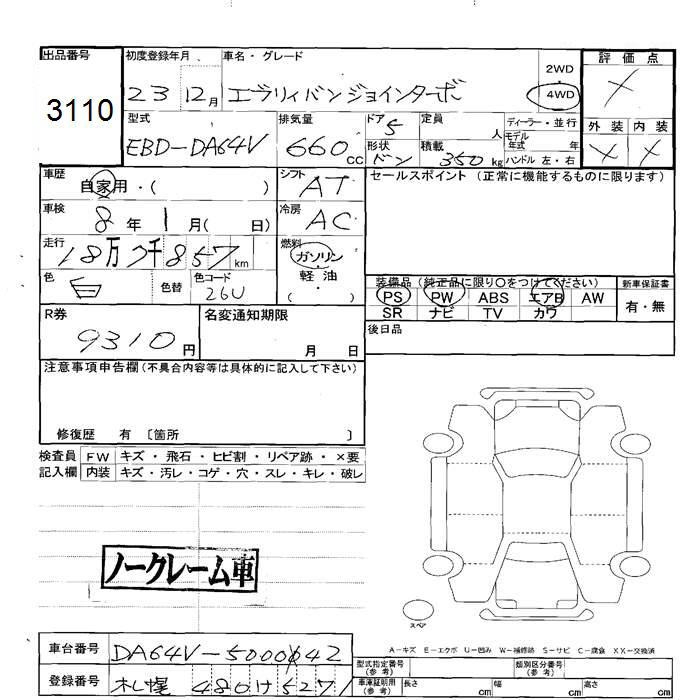 出品番号
3110
初度登録年月 車名・グレード
23 12月 エブリィバン ジョインターボ
2WD
4WD
評価点
型式 排気量 ドア 定員 ディーラー・並行
EBD-DA64V 660cc 5 人 モデル年式 年
形状 積載
バン 350kg ハンドル 左・右
外装 内装
車歴 シフト セールスポイント (正常に機能するものに限ります)
自家用・( ) AT
車検 冷房
8年 1月( 日) AC
走行 燃料
18万7千857km ガソリン・軽油・( )
色 色替 色コード
26U
装備品(純正品に限り○をつけてください) 新車保証書
PS PW ABS エアB AW 有・無
SR ナビ TV カワ
後日品
R券 名変通知期限
9310円 月 日
注意事項申告欄(不具合内容等は具体的に記入して下さい)
修復歴 有 〔箇所 〕
検査員 FW キズ・飛石・ヒビ割・リペア跡・×要
記入欄 内装 キズ・汚レ・コゲ・穴・スレ・キレ・破レ
ノークレーム車
スペア
A-キズ E-エクボ U-凹み W-補修跡 S-サビ C-腐食 XX-交換済
車台番号 DA64V-5000642
登録番号 札幌 480け527
型式指定番号(参考) 類別区分番号(参考)
車庫証明用(参考) 長さ cm 幅 cm 高さ cm